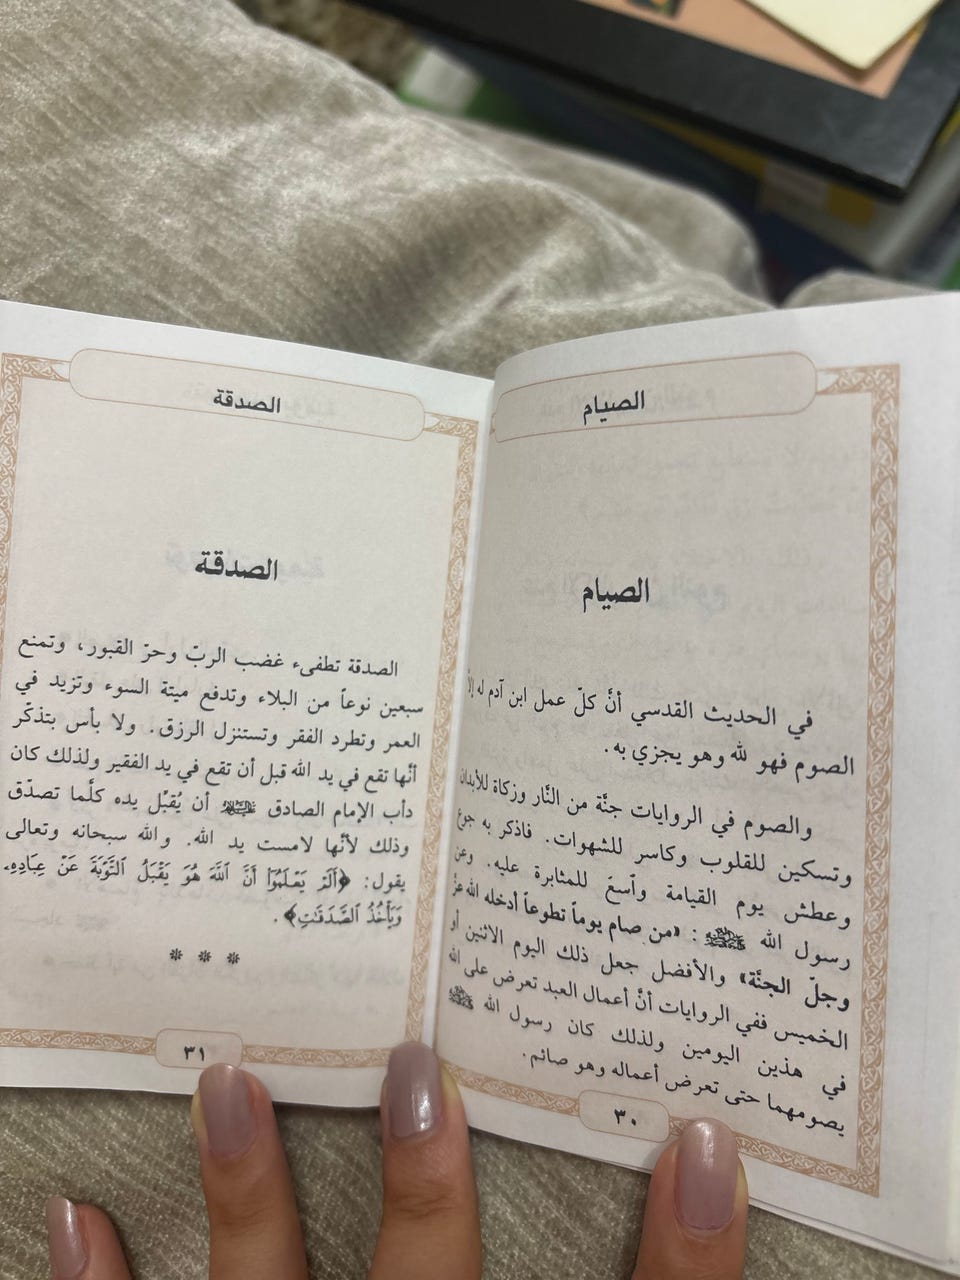 الصيام
الصيام
في الحديث القدسي أنَّ كلّ عمل ابن آدم له إلا
الصوم فهو لله وهو يجزي به.
والصوم في الروايات جنَّة من النَّار وزكاة للأبدان
وتسكين للقلوب وكاسر للشهوات. فاذكر به جوع
وعطش يوم القيامة وٱسعَ للمثابرة عليه. وعن
رسول الله ﷺ: «من صام يوماً تطوعاً أدخله الله عزَّ
وجلّ الجنَّة» والأفضل جعل ذلك اليوم الاثنين أو
الخميس ففي الروايات أنَّ أعمال العبد تعرض على الله
في هذين اليومين ولذلك كان رسول الله ﷺ
يصومهما حتى تعرض أعماله وهو صائم.
٣٠
الصدقة
الصدقة
الصدقة تطفىء غضب الربّ وحرّ القبور، وتمنع
سبعين نوعاً من البلاء وتدفع ميتة السوء وتزيد في
العمر وتطرد الفقر وتستنزل الرزق. ولا بأس بتذكّر
أنَّها تقع في يد الله قبل أن تقع في يد الفقير ولذلك كان
دأب الإمام الصادق أن يُقبِّل يده كلَّما تصدّق
وذلك لأنَّها لامست يد الله. والله سبحانه وتعالى
يقول: ﴿أَلَمْ يَعْلَمُوٓا۟ أَنَّ ٱللَّهَ هُوَ يَقْبَلُ ٱلتَّوْبَةَ عَنْ عِبَادِهِۦ
وَيَأْخُذُ ٱلصَّدَقَٰتِ﴾.
* * *
٣١